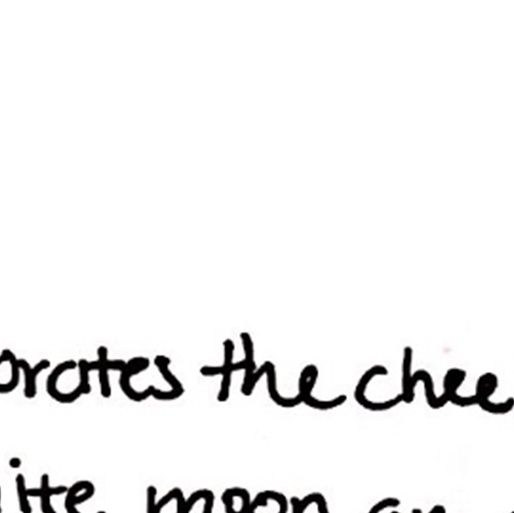 orates the chee
ite moon an